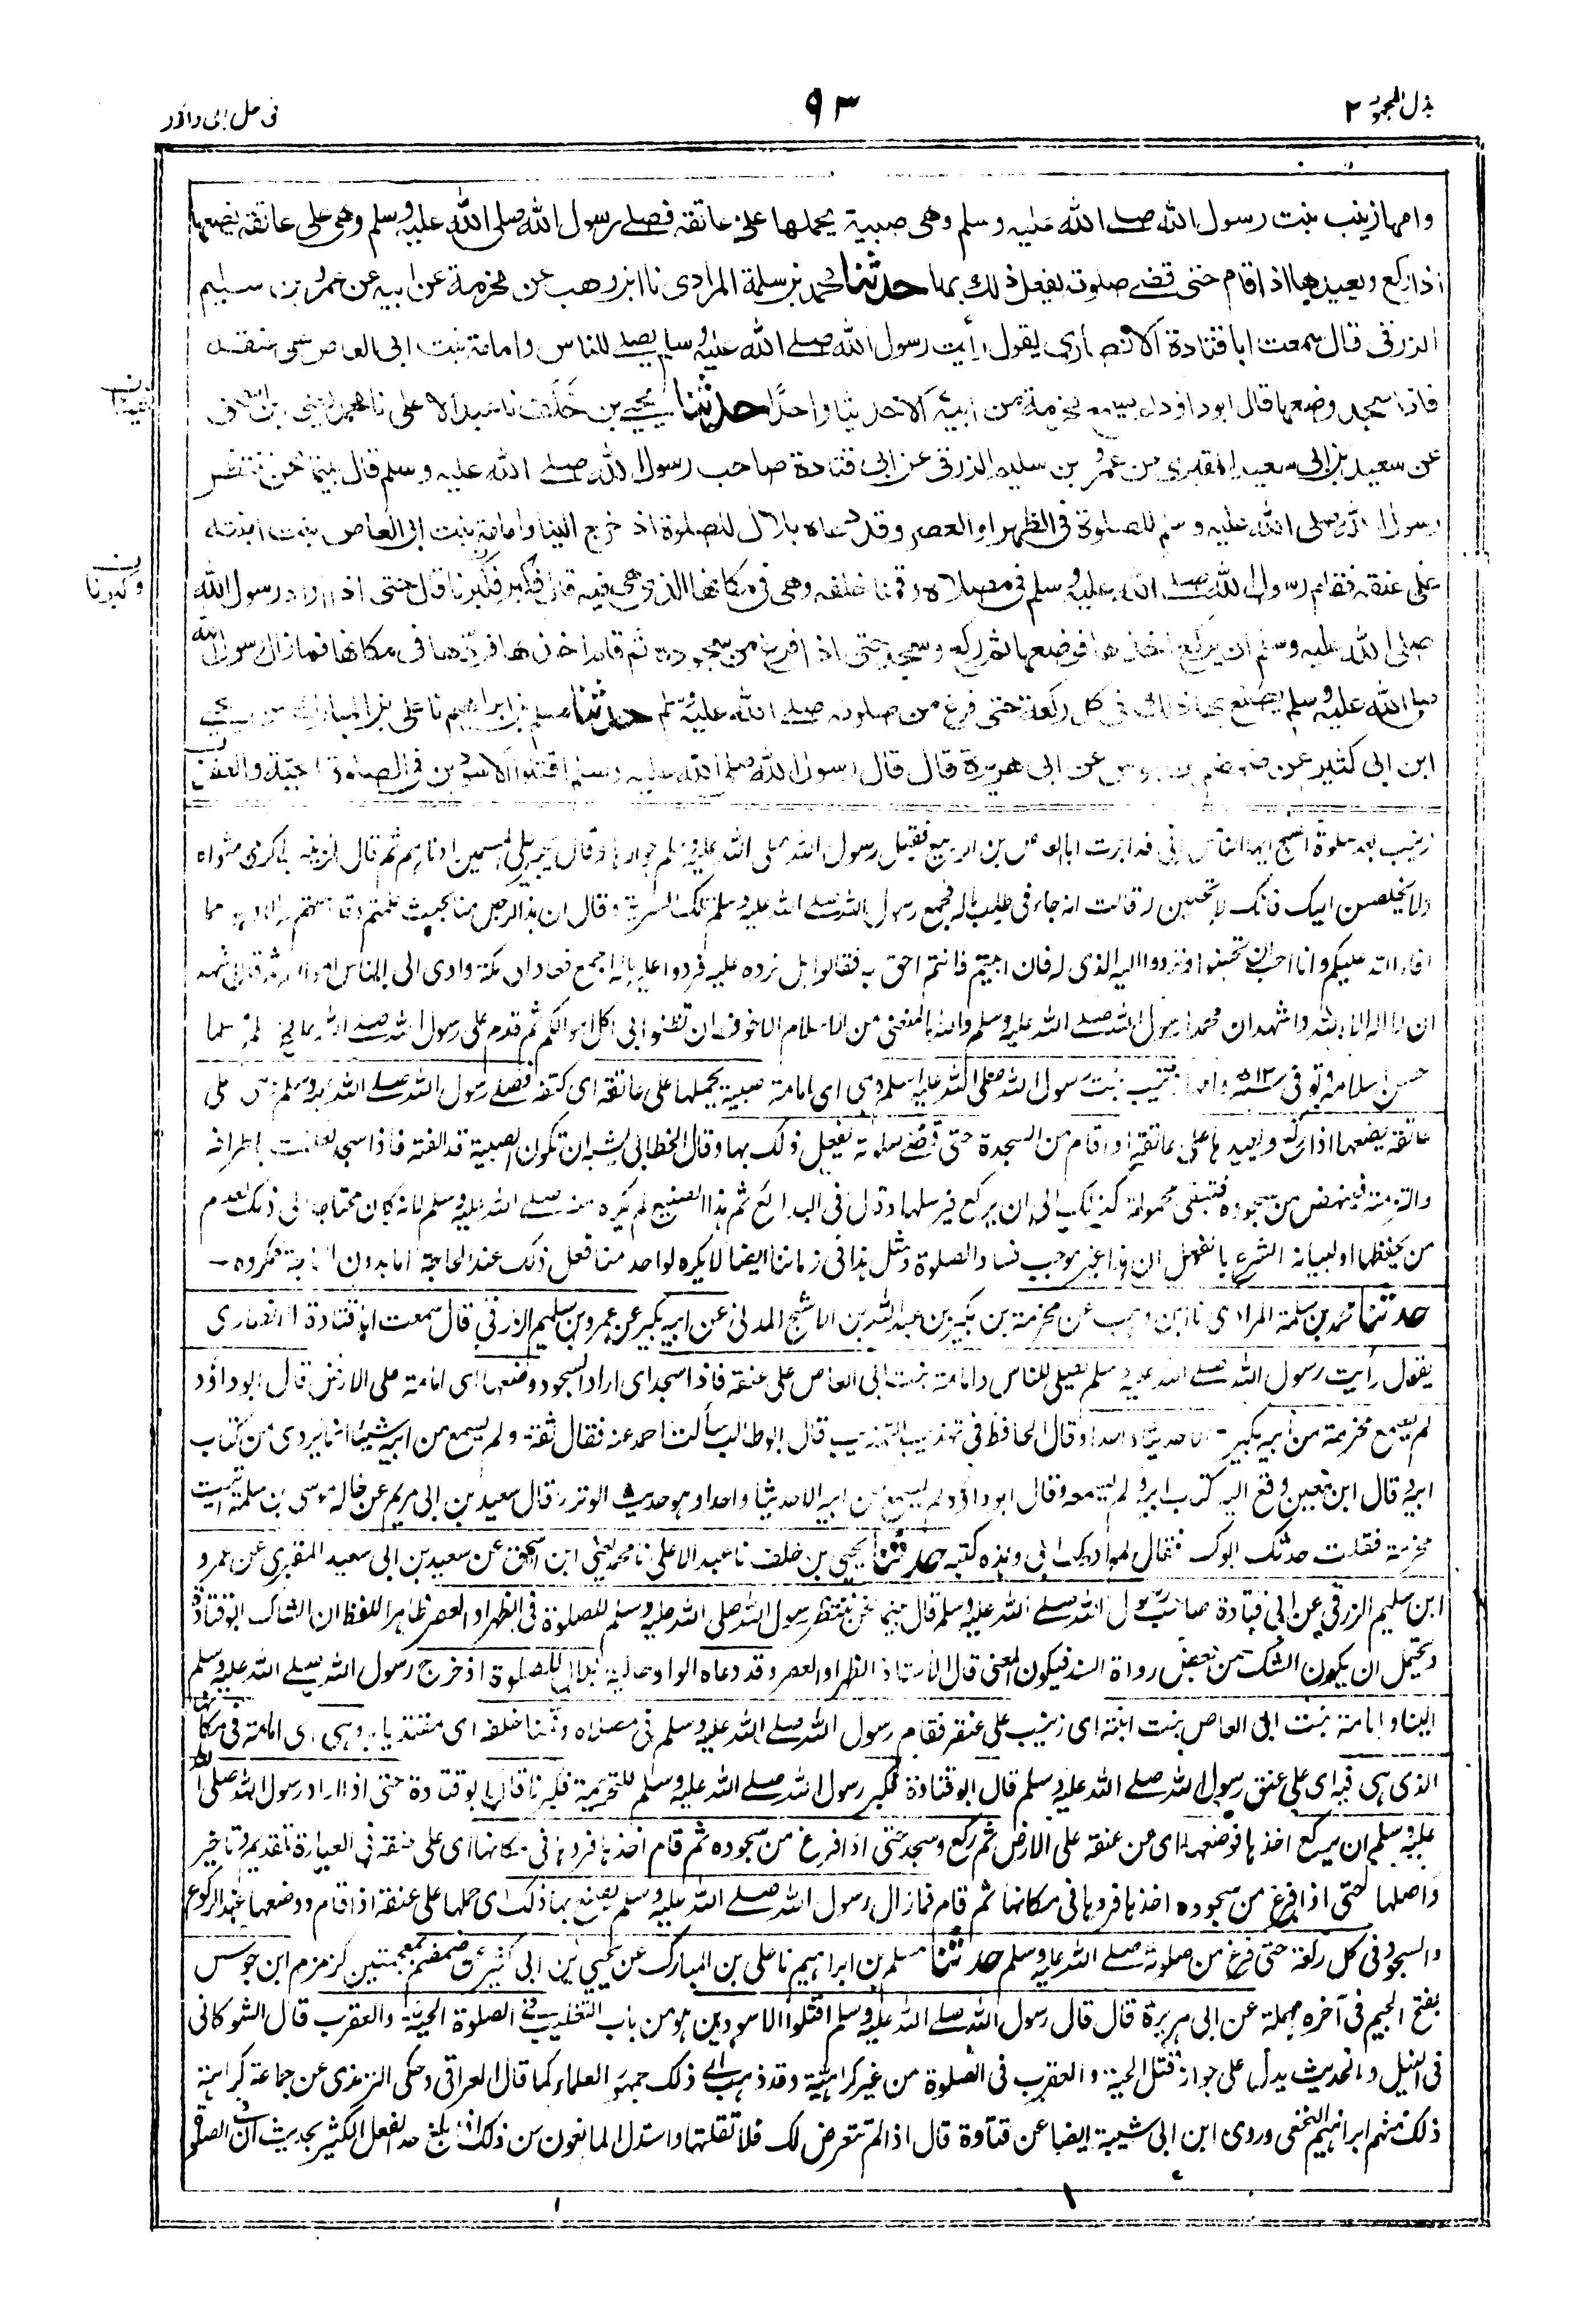 بذل المجهود ٢
٩٣
فى حل ابى داؤد
وامها زينب بنت رسول الله صلے الله عليه وسلم وهى صبية يحملها على عاتقه فصلے رسول الله صلى الله عليه وسلم وهى على عاتقه يضعها
اذا ركع ويعيدها اذا قام حتى قضے صلوته يفعل ذلك بها حدثنا محمد بن سلمة المرادى نا ابن وهب عن مخرمة عن ابيه عن عمرو بن سليم
الزرقى قال سمعت ابا قتادة الانصارى يقول رأيت رسول الله صلے الله عليه وسلم يصلے للناس وامامة بنت ابى العاص على عنقه
فاذا سجد وضعها قال ابو داؤد لم يسمع مخرمة من ابيه الا حديثا واحدًا حدثنا يحيى بن خلف نا عبد الاعلى نا محمد يعنى ابن اسحق
عن سعيد بن ابى سعيد المقبرى عن عمرو بن سليم الزرقى عن ابى قتادة صاحب رسول الله صلے الله عليه وسلم قال بينما نحن ننتظر
رسول الله صلى الله عليه وسلم للصلوة فى الظهر او العصر وقد دعاه بلال للصلوة اذ خرج الينا وامامة بنت ابى العاص بنت ابنته
على عنقه فقام رسول الله صلے الله عليه وسلم فى مصلاه وقمنا خلفه وهى فى مكانها الذى هى فيه قال فكبر فكبرنا قال حتى اذا اراد رسول الله
وكبرنا
صلى الله عليه وسلم ان يركع اخذها فوضعها ثم ركع وسجد حتى اذا فرغ من سجوده ثم قام اخذها فردها فى مكانها فما زال رسول الله
صلى الله عليه وسلم يصنع بها ذلك فى كل ركعة حتى فرغ من صلوته صلے الله عليه وسلم حدثنا مسلم بن ابراهيم نا على بن المبارك عن يحيى
ابن ابى كثير عن ضمضم بن جوس عن ابى هريرة قال قال رسول الله صلى الله عليه وسلم اقتلوا الاسودين فى الصلوة الحية والعقرب
زينب بعد صلوة الصبح ايها الناس انى قد اجرت ابا العاص بن الربيع فقبل رسول الله صلى الله عليه وسلم جوارها وقال يجير على المسلمين ادناهم ثم قال لزينب اكرمى مثواه
ولا يخلصن اليك فانك لا تحلين له قالت انه جاء فى طلب ماله فجمع رسول الله صلے الله عليه وسلم تلك السرية وقال ان هذا الرجل منا بحيث علمتم وقد
افاء الله عليكم وانا احب ان تحسنوا وتردوا اليه الذى له فان ابيتم فانتم احق به فقالوا بل نرده عليه فردوا عليه ماله اجمع فعاد الى مكة وادى الى الناس
ان لا اله الا الله واشهد ان محمدا رسول الله صلے الله عليه وسلم والله ما منعنى من الاسلام الا خوف ان تظنوا بى اكل اموالكم ثم قدم على رسول الله صلے الله
حسن اسلامه وتوفى سنة ١٢ وامها زينب بنت رسول الله صلى الله عليه وسلم وهى اى امامة صبية يحملها على عاتقه اى كتفه فصلے رسول الله صلے الله عليه وسلم وهى على
عاتقه يضعها اذا ركع ويعيدها على عاتقه اذا قام من السجدة حتى قضے صلوته يفعل ذلك بها وقال الخطابى يشبه ان تكون الصبية قد الفته فاذا سجد تعلقت باطرافه
والتزمته فينهض من سجوده فتبقى محمولة كذلك الى ان يركع فيرسلها وقال فى البدائع ثم هذا الصنيع لم يكره منه صلے الله عليه وسلم لانه كان محتاجا الى ذلك لعدم
من يحفظها او لبيانه الشرع بالفعل ان هذا غير موجب فساد الصلوة ومثل هذا فى زماننا ايضا لا يكره لواحد منا فعل ذلك عند الحاجة اما بدون الحاجة فمكروه -
حدثنا محمد بن سلمة المرادى نا ابن وهب عن مخرمة بن بكير بن عبد الله بن الاشج المدنى عن ابيه بكير عن عمرو بن سليم الزرقى قال سمعت ابا قتادة الانصارى
يقول رأيت رسول الله صلے الله عليه وسلم يصلى للناس وامامة بنت ابى العاص على عنقه فاذا سجد اى اراد السجود وضعها اى امامة على الارض قال ابو داؤد
لم يسمع مخرمة من ابيه بكير الا حديثا واحدا وقال الحافظ فى تهذيب التهذيب قال ابو طالب سألت احمد عنه فقال ثقة ولم يسمع من ابيه شيئا انما يروى من كتاب
ابيه وقال ابن معين وقع اليه كتاب ابيه ولم يسمعه وقال ابو داؤد لم يسمع من ابيه الا حديثا واحدا وهو حديث الوتر وقال سعيد بن ابى مريم عن خاله موسى بن سلمة اتيت
مخرمة فقلت حدثك ابوك فقال لم ادرك ابى وهذه كتبه حدثنا يحيى بن خلف نا عبد الاعلى نا محمد يعنى ابن اسحق عن سعيد بن ابى سعيد المقبرى عن عمرو
ابن سليم الزرقى عن ابى قتادة صاحب رسول الله صلے الله عليه وسلم قال بينما نحن ننتظر رسول الله صلى الله عليه وسلم للصلوة فى الظهر او العصر ظاهر اللفظ ان الشاك ابو قتادة
ويحتمل ان يكون الشك من بعض رواة السند فيكون المعنى قال الاستاذ الظهر او العصر وقد دعاه الواو حالية بلال للصلوة اذ خرج رسول الله صلے الله عليه وسلم
الينا وامامة بنت ابى العاص بنت ابنته اى زينب على عنقه فقام رسول الله صلے الله عليه وسلم فى مصلاه وقمنا خلفه اى مقتديا به وهى اى امامة فى مكانها
الذى هى فيه اى على عنق رسول الله صلے الله عليه وسلم قال ابو قتادة فكبر رسول الله صلے الله عليه وسلم للتحريمة فكبرنا قال ابو قتادة حتى اذا اراد رسول الله صلى الله
عليه وسلم ان يركع اخذها فوضعها اى من عنقه على الارض ثم ركع وسجد حتى اذا فرغ من سجوده ثم قام اخذها فردها فى مكانها اى على عنقه فى العبارة تقديم وتاخير
واصلها حتى اذا فرغ من سجوده اخذها فردها فى مكانها ثم قام فما زال رسول الله صلے الله عليه وسلم يصنع بها ذلك اى حملها على عنقه اذا قام ووضعها عند الركوع
والسجود فى كل ركعة حتى فرغ من صلوته صلے الله عليه وسلم حدثنا مسلم بن ابراهيم نا على بن المبارك عن يحيى بن ابى كثير عن ضمضم بمعجمتين كزمزم ابن جوس
بفتح الجيم فى آخره مهملة عن ابى هريرة قال قال رسول الله صلے الله عليه وسلم اقتلوا الاسودين هو من باب التغليب فى الصلوة الحية والعقرب قال الشوكانى
فى النيل والحديث يدل على جواز قتل الحية والعقرب فى الصلوة من غير كراهية وقد ذهب الى ذلك جمهور العلماء كما قال العراقى وحكى الترمذى عن جماعة كراهة
ذلك منهم ابراهيم النخعى وروى ابن ابى شيبة ايضا عن قتادة قال اذا لم تتعرض لك فلا تقتلها واستدل المانعون من ذلك اذا بلغ حد الفعل الكثير بحديث ان فى الصلوة